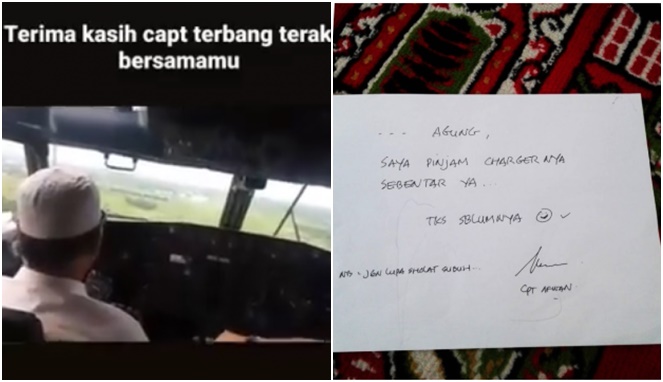 Terima kasih capt terbang terak
bersamamu
--- AGUNG,
SAYA PINJAM CHARGERNYA
SEBENTAR YA...
TKS SBLUMNYA
NB - JGN LUPA SHOLAT SUBUH...
CPT AFWAN